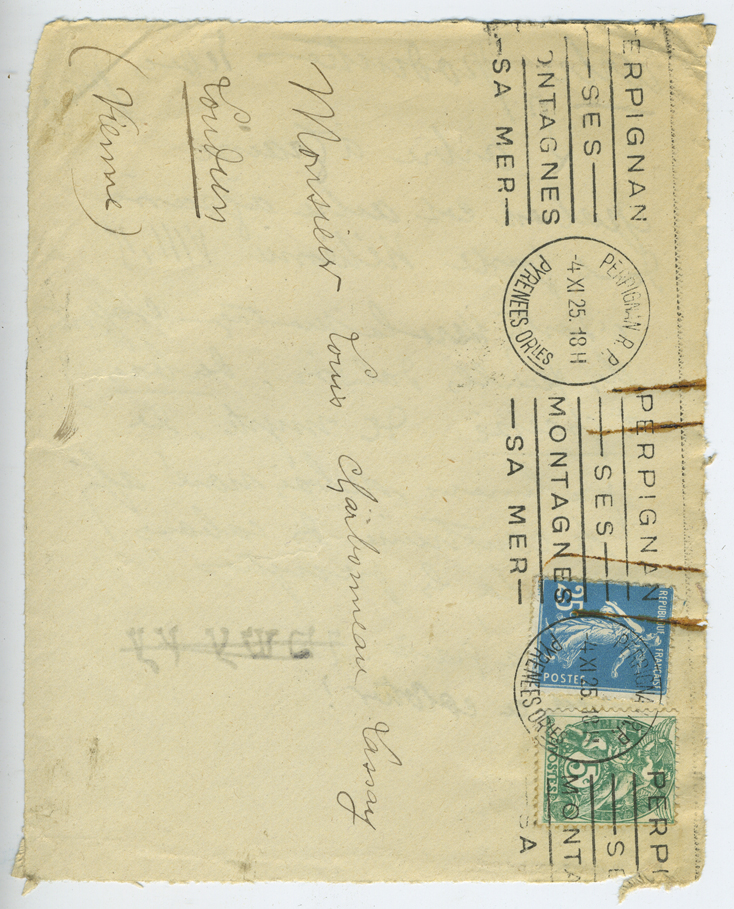 PERPIGNAN
SES
MONTAGNES
SA MER
PERPIGNAN R.P.
-4 XI 25. 18H
PYRENEES ORLES
PERPIGNAN
SES
MONTAGNES
SA MER
REPUBLIQUE FRANCAISE
25
POSTES
4 XI 25. 18
PYRENEES ORLES
5
POSTES
PERPI
SE
MONTA
SA
Monsieur Louis Charbonneau Lassay
Loudun
(Vienne)